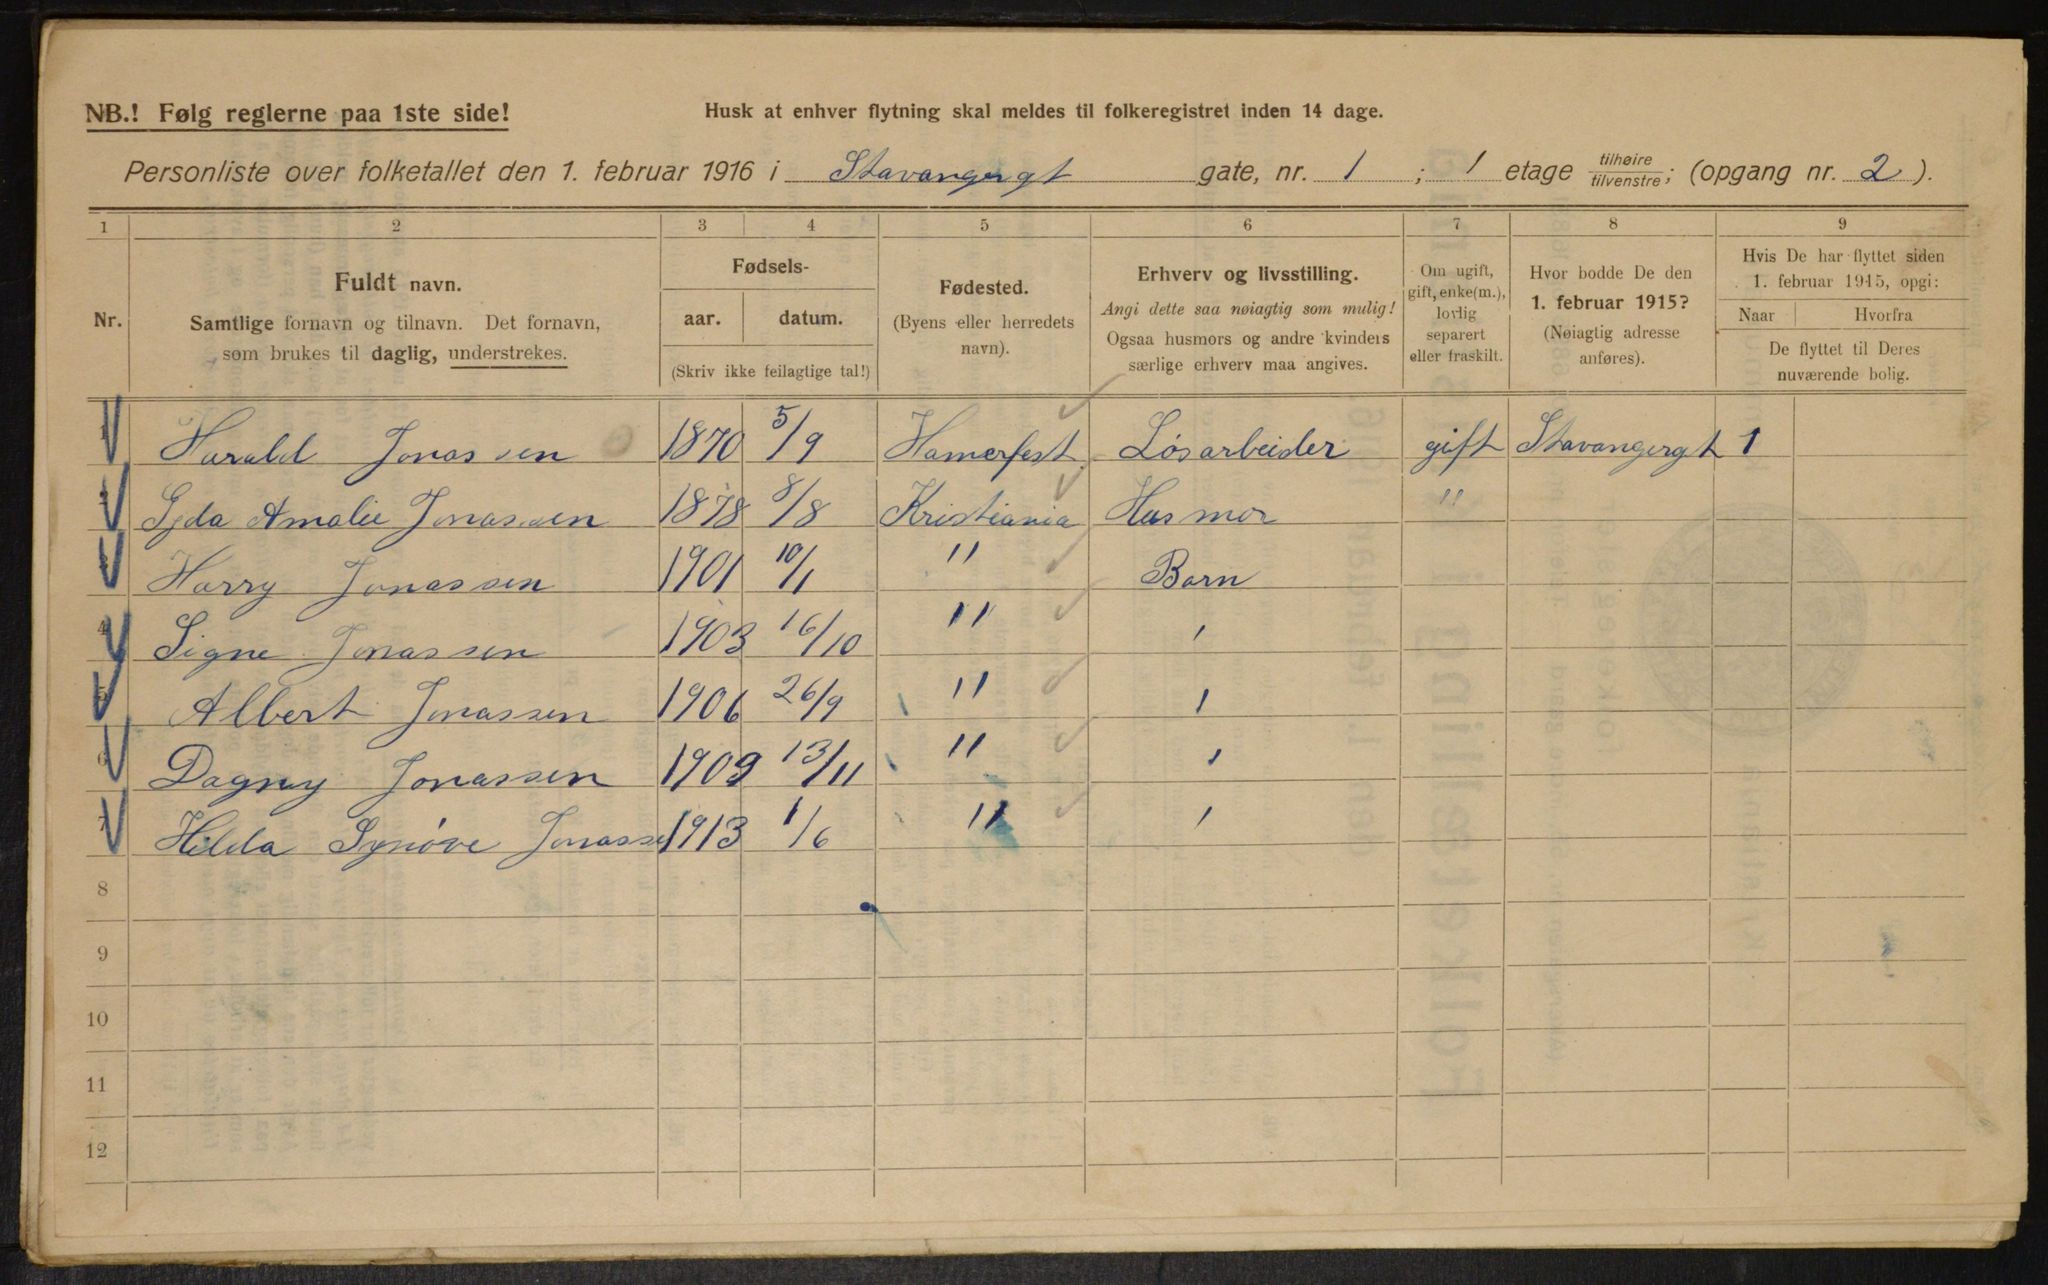 NB.! Følg reglerne paa 1ste side!
Husk at enhver flytning skal meldes til folkeregistret inden 14 dage.
Personliste over folketallet den 1. februar 1916 i Stavangergt gate, nr. 1 ; 1 etage tilhøire/tilvenstre; (opgang nr. 2).
1 2 3 4 5 6 7 8 9
Nr.
Fuldt navn.
Samtlige fornavn og tilnavn. Det fornavn,
som brukes til daglig, understrekes.
Fødsels-
aar. datum.
(Skriv ikke feilagtige tal!)
Fødested.
(Byens eller herredets
navn).
Erhverv og livsstilling.
Angi dette saa nøiagtig som mulig!
Ogsaa husmors og andre kvinders
særlige erhverv maa angives.
Om ugift,
gift, enke(m.),
lovlig
separert
eller fraskilt.
Hvor bodde De den
1. februar 1915?
(Nøiagtig adresse
anføres).
Hvis De har flyttet siden
1. februar 1915, opgi:
Naar Hvorfra
De flyttet til Deres
nuværende bolig.
1 Harald Jonassen 1870 5/9 Hamerfest Løsarbeider gift Stavangergt 1
2 Amalie Jonassen 1878 8/8 Kristiania Husmor "
3 Harry Jonassen 1901 10/1 " Barn
4 Signe Jonassen 1903 16/10 " '
5 Albert Jonassen 1906 26/9 " '
6 Dagny Jonassen 1909 13/11 " '
7 Hilda Synøve Jonasse 1913 1/6 " '
8
9
10
11
12